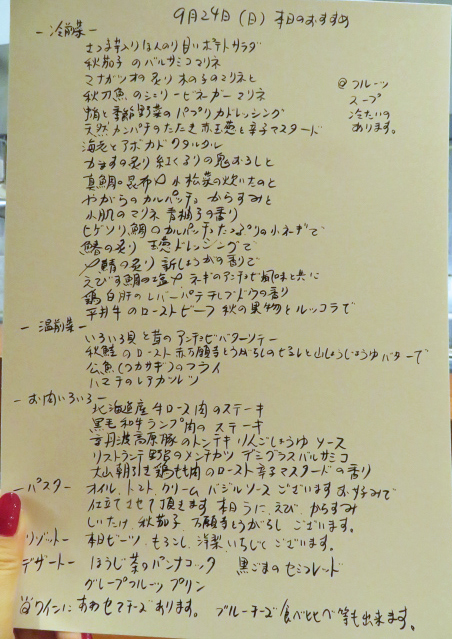 9月24日(日) 本日のおすすめ
－冷前菜－
さつま芋入りほんのり甘いポテトサラダ
秋茄子のバルサミコマリネ
マナガツオの炙り 木の子のマリネと
秋刀魚のシェリービネガーマリネ
蛸と季節野菜のパプリカドレッシング
天然カンパチのたたき 赤玉葱と辛子マスタード
海老とアボカドのタルタル
かますの炙り 紅くるりの鬼おろしと
真鯛の昆布〆 小松菜の炊いたのと
やがらのカルパッチョ からすみと
小肌のマリネ 青柚子の香り
ヒゲソリ鯛のカルパッチョ たっぷりの小ネギで
鰆の炙り 玉葱ドレッシングで
〆鯖の炙り 新しょうがの香りで
えびす鯛の塩〆 ネギのアンチョビ風味と共に
鶏白肝のレバーパテ 干しブドウの香り
平井牛のローストビーフ 秋の果物とルッコラで
@フルーツ
スープ
冷たいの
あります。
－温前菜－
いろいろ貝と茸のアンチョビバターソテー
秋鮭のロースト 赤万願寺とうがらしのせるしと山しょうじょうゆバターで
公魚(ワカサギ)のフライ
ハマチのレアカツレツ
－お肉いろいろ－
北海道産牛ロース肉のステーキ
黒毛和牛ランプ肉のステーキ
京丹波高原豚のトンテキ りんごしょうゆソース
リストランテ野呂のメンチカツ デミグラスバルサミコ
大山朝引き鶏もも肉のロースト 辛子マスタードの香り
－パスタ－ オイル、トマト、クリーム バジルソースございます お好みで
仕立てさせて頂きます 本日うに、えび、からすみ
しいたけ、秋茄子、万願寺とうがらし ございます。
リゾット－ 本日ビーツ、もろこし、洋梨、いちじくございます。
デザート－ ほうじ茶のパンナコッタ 黒ごまのセミフレッド
グレープフルーツプリン
ワインにあわせてチーズあります。 ブルーチーズ食べ比べ等も出来ます。